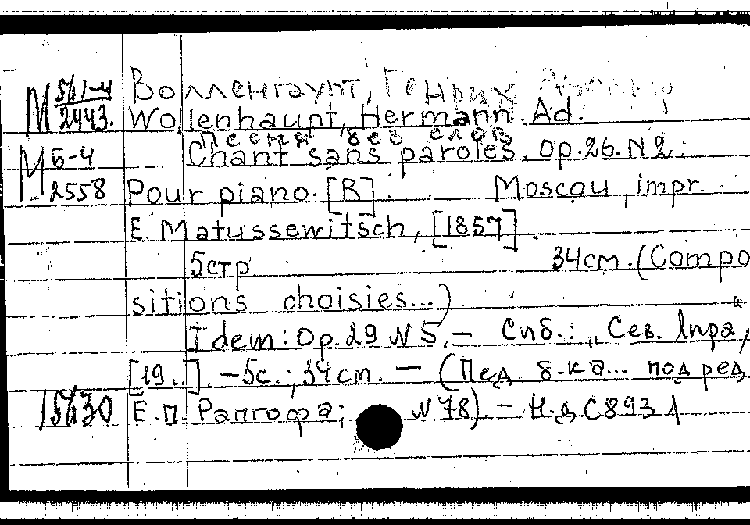 М 561-4 Волленгаупт, Генрих
2443. Wollenhaupt, Hermann Ad.
Песня без слов
М Б-4 Chant sans paroles. Op.26. N2.
2558 Pour piano. [B] Moscou, impr.
E Matussewitsch, [1857]
5стр 34cm. (Compo
sitions choisies...)
Idem: Op.29 N5. — Спб.: "Сев. лира,
[19..] — 5с.; 34cm. — (Пед. б-ка... под ред.
15630 Е.П. Рапгофа; N 78) — Н.д С893Л